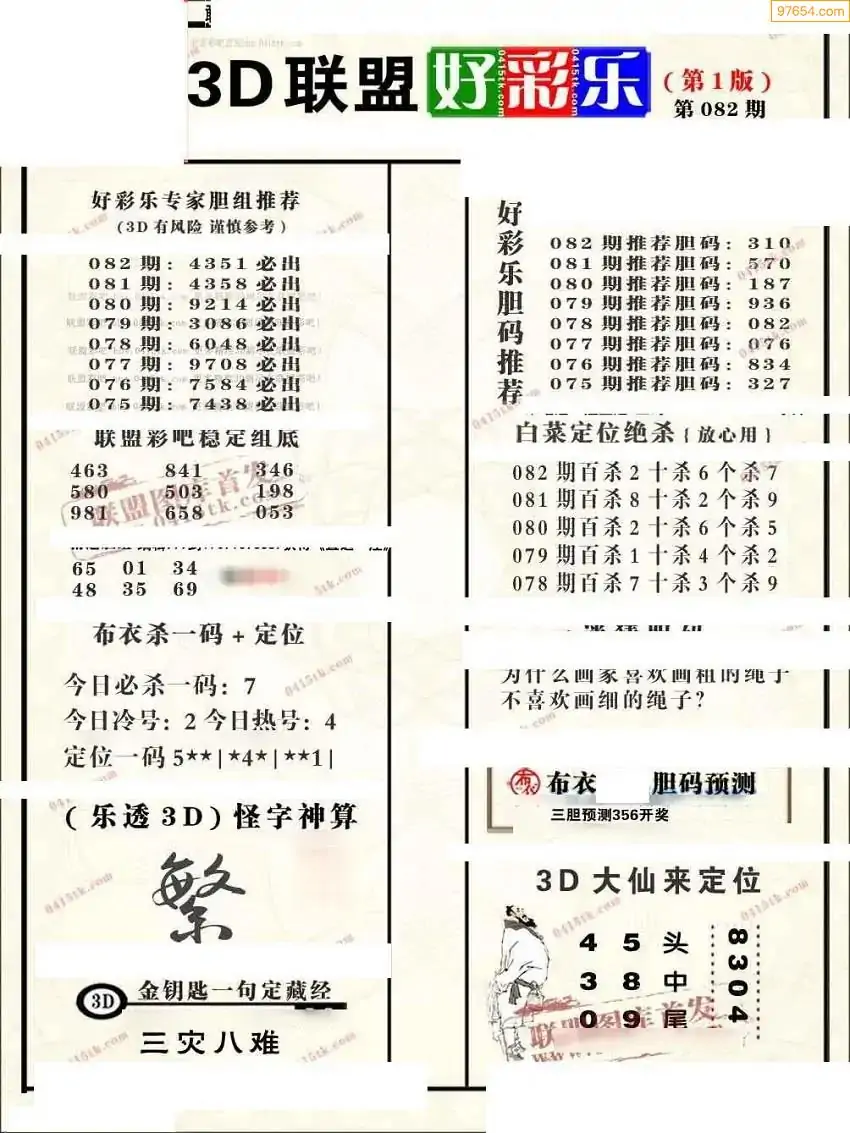 97654.com
3D联盟好彩乐
0415tk.com
0415tk.com
(第1版)
第082期
好彩乐专家胆组推荐
(3D有风险 谨慎参考)
082期: 4351必出
081期: 4358必出
080期: 9214必出
079期: 3086必出
078期: 6048必出
077期: 9708必出
076期: 7584必出
075期: 7438必出
联盟彩吧稳定组底
463 841 346
580 503 198
981 658 053
联盟图库首发
0415tk.com
65 01 34
48 35 69
布衣杀一码+定位
今日必杀一码: 7
今日冷号: 2 今日热号: 4
定位一码5**|*4*|**1|
(乐透3D)怪字神算
繁
3D 金钥匙一句定藏经
三灾八难
好彩乐胆码推荐
082期推荐胆码: 310
081期推荐胆码: 570
080期推荐胆码: 187
079期推荐胆码: 936
078期推荐胆码: 082
077期推荐胆码: 076
076期推荐胆码: 834
075期推荐胆码: 327
白菜定位绝杀{放心用}
082期百杀2十杀6个杀7
081期百杀8十杀2个杀9
080期百杀2十杀6个杀5
079期百杀1十杀4个杀2
078期百杀7十杀3个杀9
为什么画家喜欢画粗的绳子
不喜欢画细的绳子?
布衣 布衣 胆码预测
三胆预测356开奖
3D大仙来定位
4 5 头
3 8 中
0 9 尾
8304
联盟图库首发